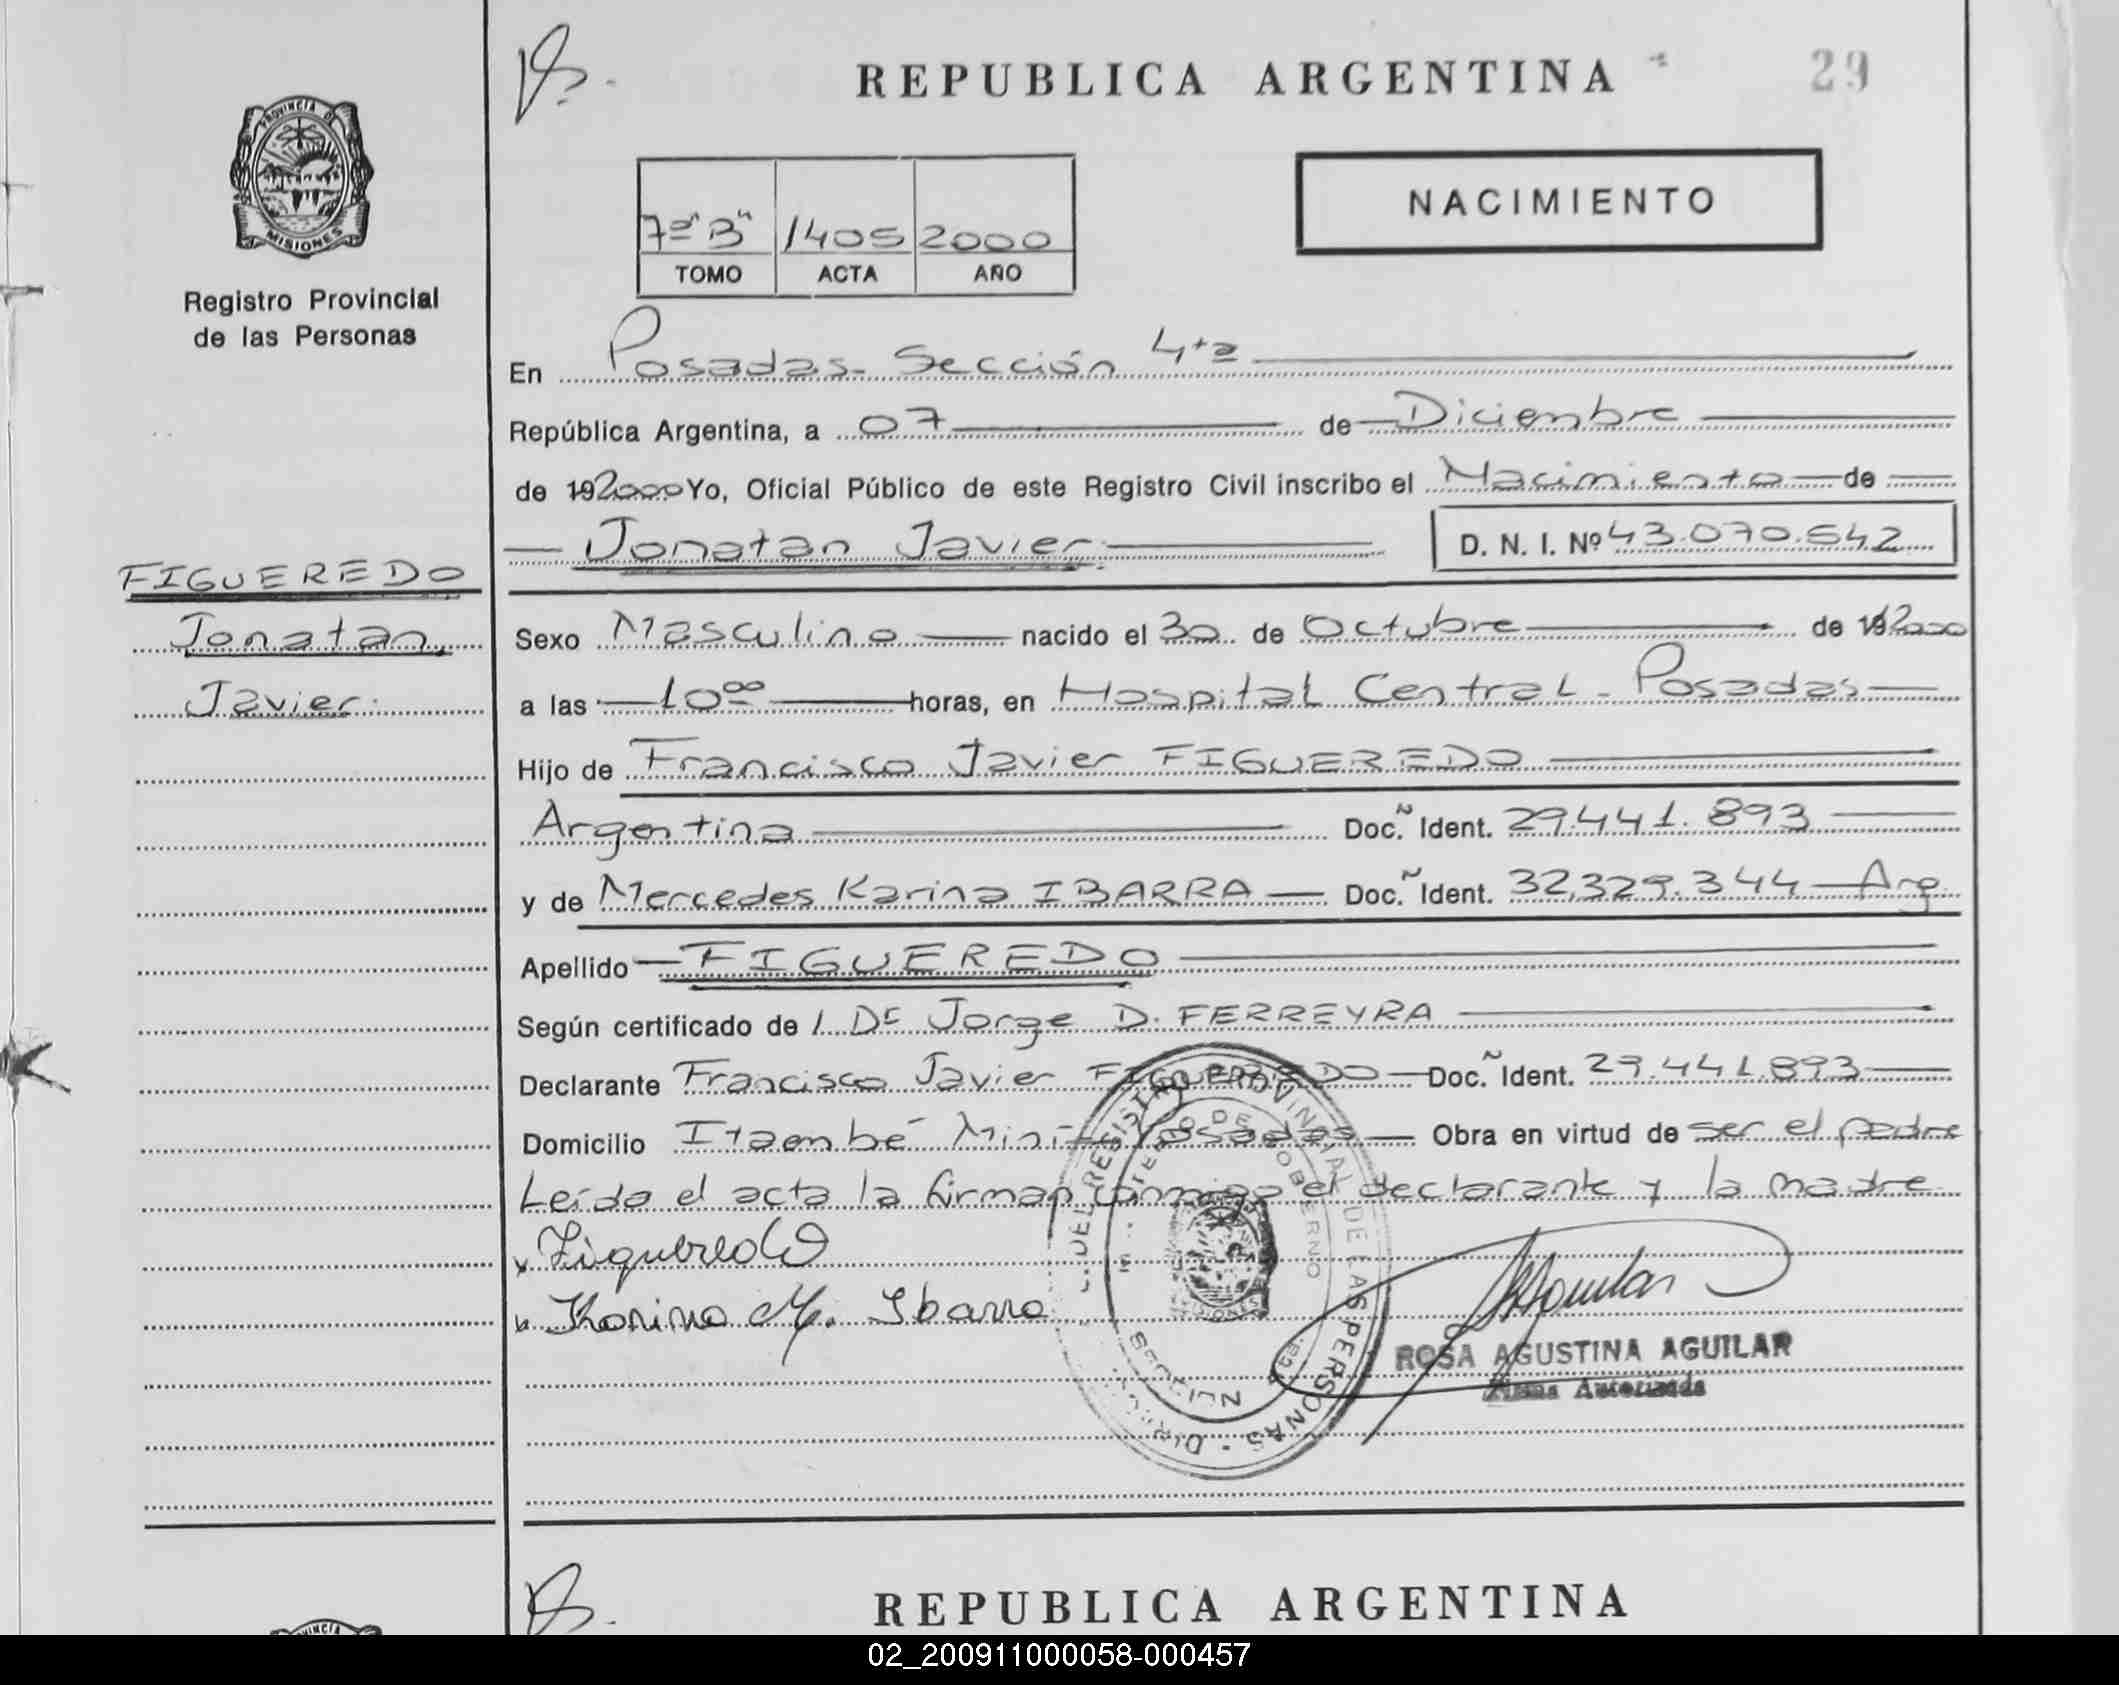 REPUBLICA ARGENTINA
29
PROVINCIA DE
MISIONES
Registro Provincial
de las Personas
NACIMIENTO
7º "B" 1405 2000
TOMO ACTA AÑO
En Posadas - Sección 4ta
República Argentina, a 07 de Diciembre
de 19 2000 Yo, Oficial Público de este Registro Civil inscribo el Nacimiento de
Jonatan Javier
D. N. I. Nº 43.070.542
FIGUEREDO
Jonatan
Javier
Sexo Masculino nacido el 30 de Octubre de 19 2000
a las 10 00 horas, en Hospital Central - Posadas
Hijo de Francisco Javier FIGUEREDO
Argentina Doc. Ident. 29.441.893
y de Mercedes Karina IBARRA Doc. Ident. 32.329.344 Arg.
Apellido FIGUEREDO
Según certificado de / Dr Jorge D. FERREYRA
Declarante Francisco Javier FIGUEREDO Doc. Ident. 29.441.893
Domicilio Itaembé Miní - Posadas Obra en virtud de ser el padre
Leída el acta la firman conmigo el declarante y la madre
x Figueredo
x Karina M. Ibarra
DEL REGISTRO PROVINCIAL DE LAS PERSONAS
DE GOBIERNO
MISIONES
SECCION
ROSA AGUSTINA AGUILAR
Firma Autorizada
REPUBLICA ARGENTINA
02_200911000058-000457